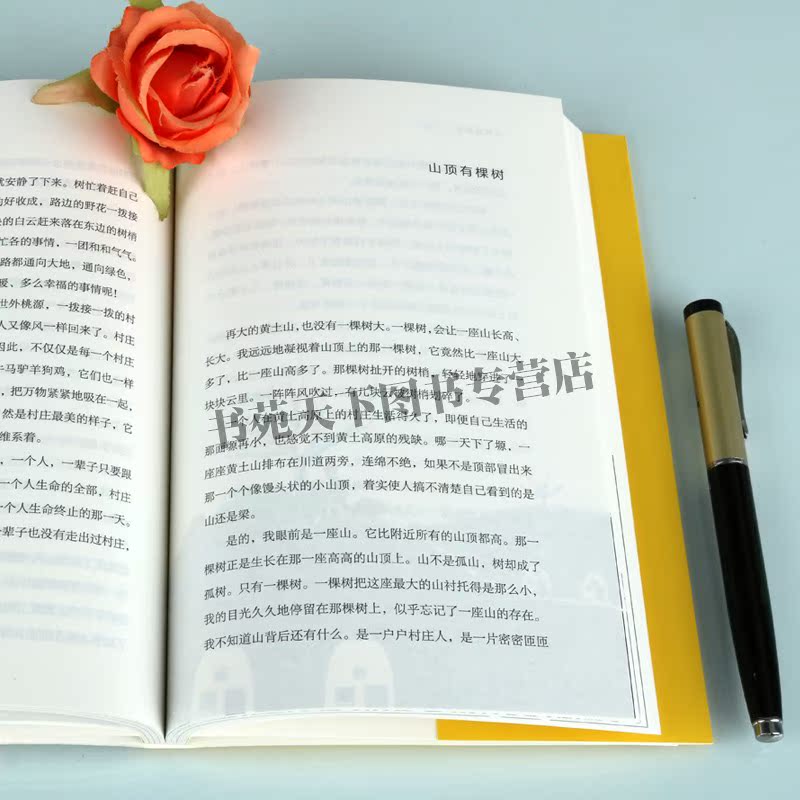 就安静了下来。树忙着赶自己
的好收成，路边的野花一拨接
的白云赶来落在东边的树梢
忙各的事情，一团和和气气。
路都通向大地，通向绿色，
暖，多么幸福的事情呢！
世外桃源，一拨接一拨的村
人又像风一样回来了。村庄
因此，不仅仅是每一个村庄
牛马驴羊狗鸡，它们也一样
，把万物紧紧地吸在一起，
然是村庄最美的样子，它
维系着。
，一个人，一辈子只要跟
一个人生命的全部，村庄
一个人生命终止的那一天。
一辈子也没有走出过村庄，
山顶有棵树
再大的黄土山，也没有一棵树大。一棵树，会让一座山长高、
长大。我远远地凝视着山顶上的那一棵树，它竟然比一座山大
多了，比一座山高多了。那棵树扯开的树梢，轻轻地穿过一
块块云里。一阵阵风吹过，有几块云被树梢划碎了。
一个人在黄土高原上的村庄生活得久了，即便自己生活的
那面塬再小，也感觉不到黄土高原的残缺。哪一天下了塬，一
座座黄土山排布在川道两旁，连绵不绝，如果不是顶部冒出来
那一个个像馒头状的小山顶，着实使人搞不清楚自己看到的是
山还是梁。
是的，我眼前是一座山。它比附近所有的山顶都高。那一
棵树正是生长在那一座高高的山顶上。山不是孤山，树却成了
孤树。只有一棵树。一棵树把这座最大的山衬托得是那么小，
我的目光久久地停留在那棵树上，似乎忘记了一座山的存在。
我不知道山背后还有什么。是一户户村庄人，是一片密密匝匝
书苑天下图书专营店